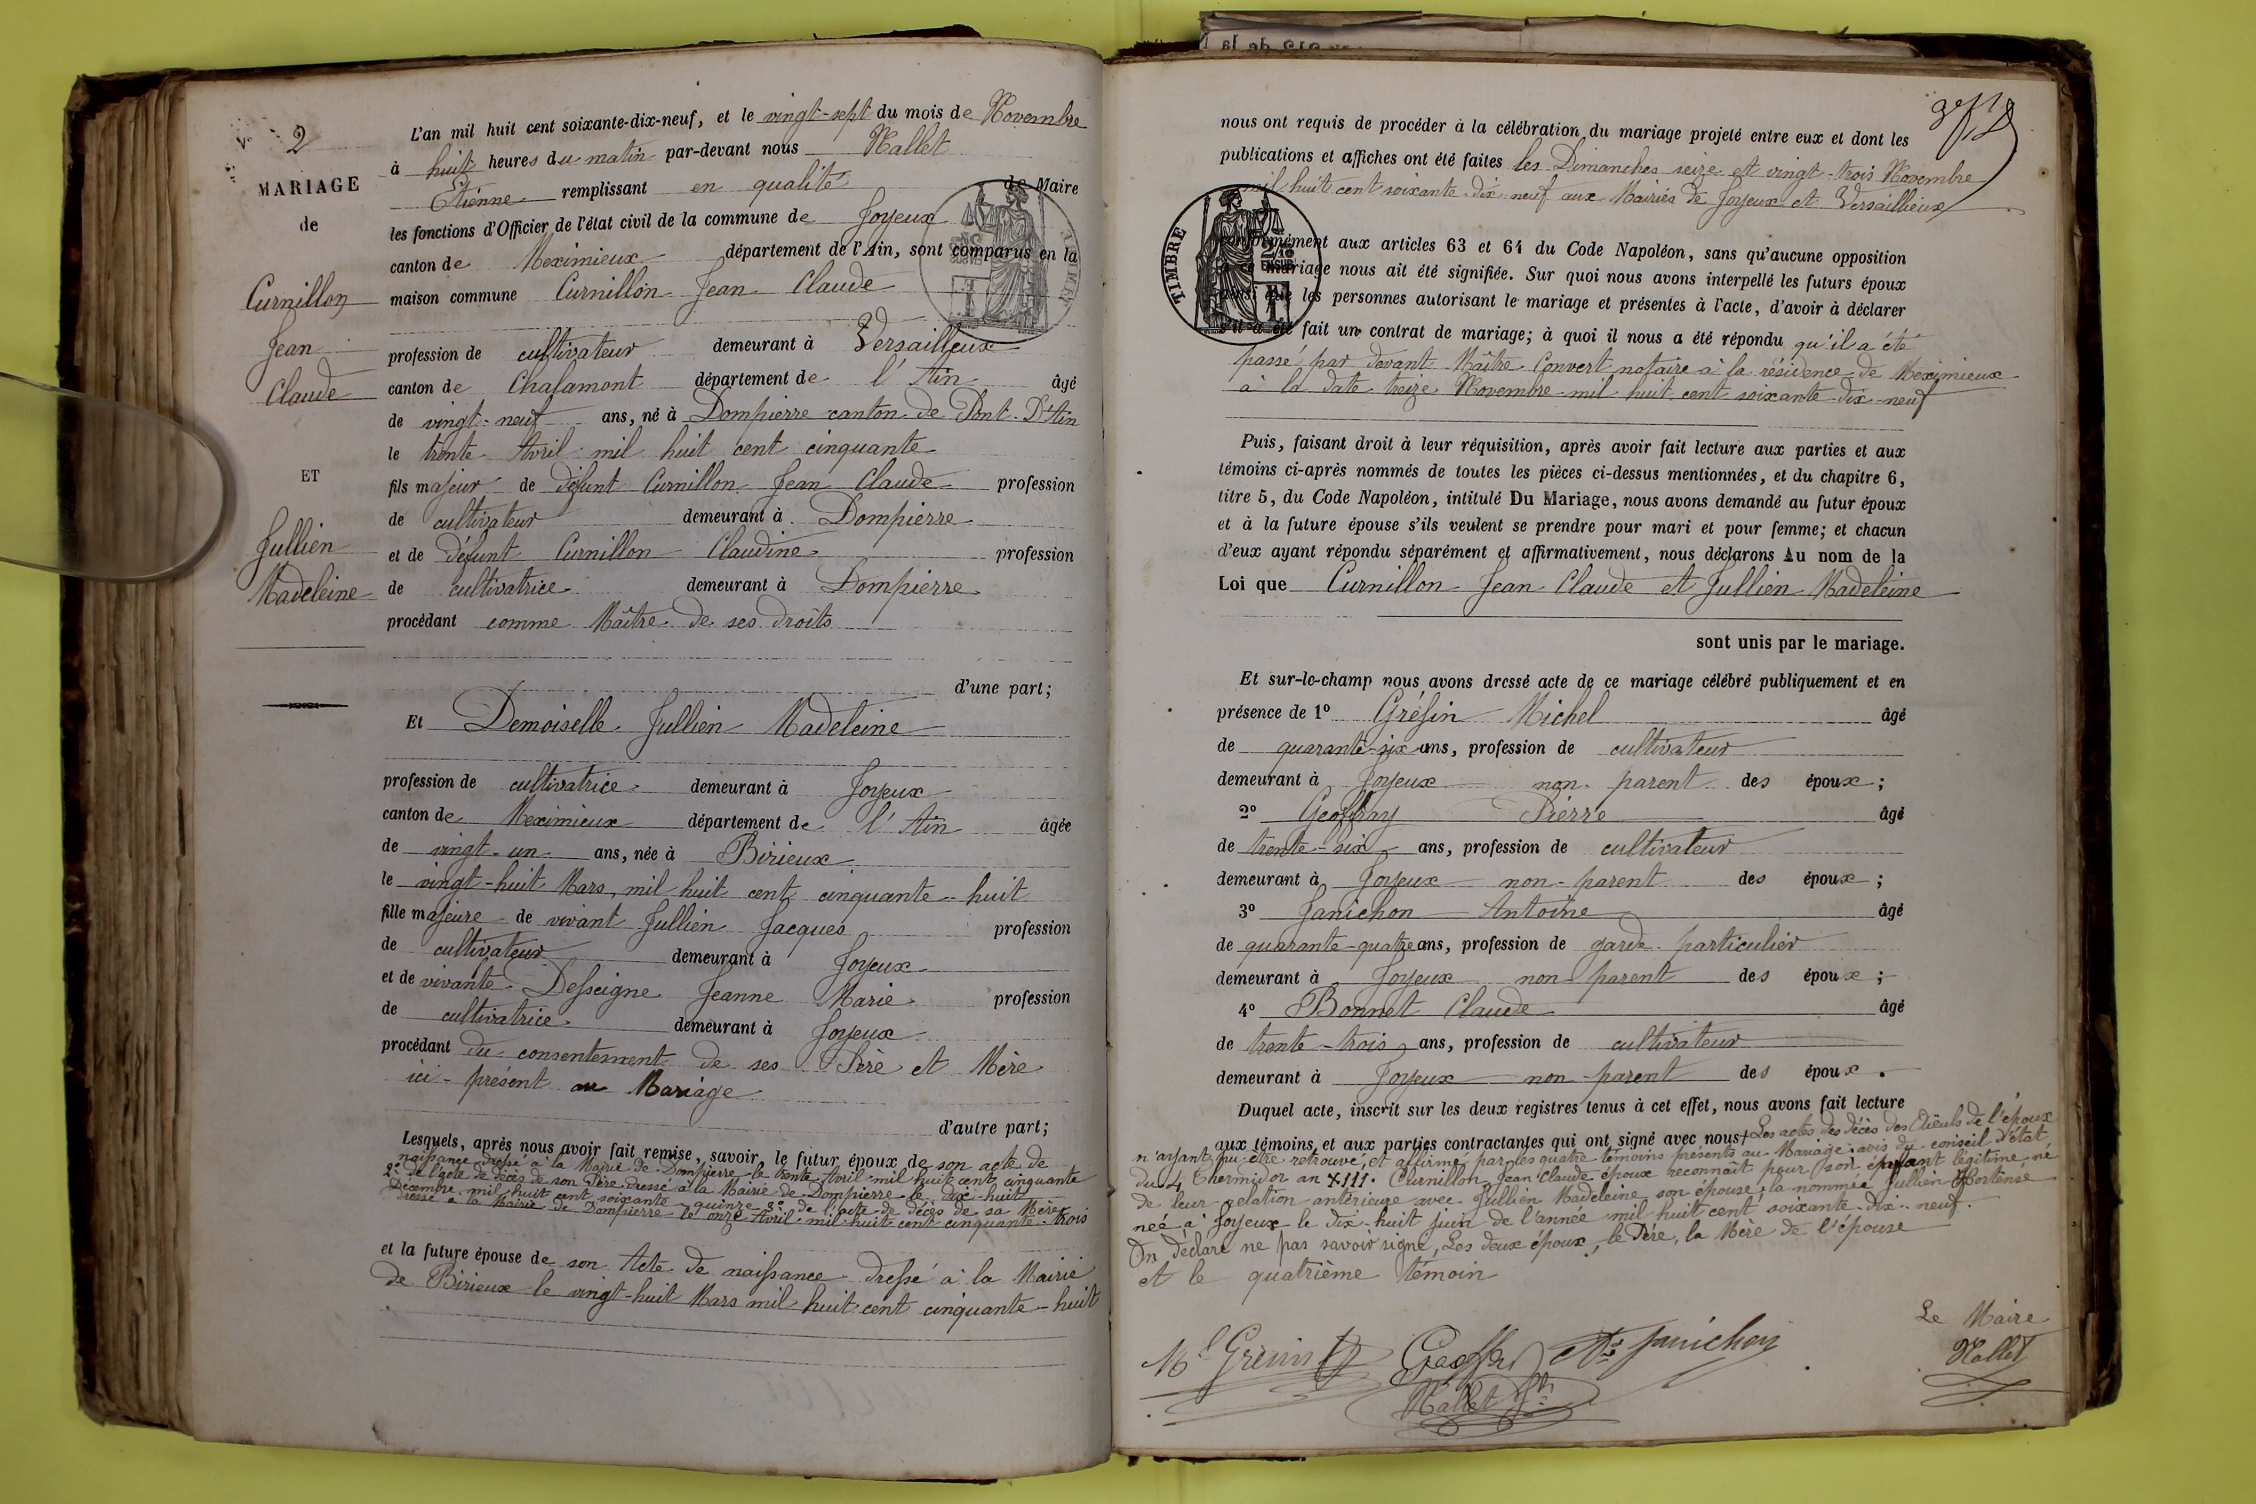 2
MARIAGE
de
Curnillon
Jean
Claude
ET
Jullien
Madeleine
L'an mil huit cent soixante-dix-neuf, et le vingt-sept du mois de Novembre
à huit heures du matin par-devant nous Nallet
Etienne remplissant en qualité de Maire
les fonctions d'Officier de l'état civil de la commune de Joyeux
canton de Meximieux département de l'Ain, sont comparus en la
maison commune Curnillon Jean Claude
profession de cultivateur demeurant à Versailleux
canton de Chalamont département de l'Ain âgé
de vingt-neuf ans, né à Dompierre canton de Pont-D'Ain
le trente Avril mil huit cent cinquante
fils majeur de défunt Curnillon Jean Claude profession
de cultivateur demeurant à Dompierre
et de défunt Curnillon Claudine profession
de cultivatrice demeurant à Dompierre
procédant comme Maître de ses droits
d'une part;
Et Demoiselle Jullien Madeleine
profession de cultivatrice demeurant à Joyeux
canton de Meximieux département de l'Ain âgée
de vingt-un ans, née à Birieux
le vingt-huit Mars mil huit cent cinquante-huit
fille majeure de vivant Jullien Jacques profession
de cultivateur demeurant à Joyeux
et de vivante Desseigne Jeanne Marie profession
de cultivatrice demeurant à Joyeux
procédant du consentement de ses Père et Mère
ici-présent au Mariage
d'autre part;
Lesquels, après nous avoir fait remise, savoir, le futur époux de son acte de
naissance dressé à la Mairie de Dompierre le trente Avril mil huit cent cinquante
2° de l'acte de décès de son Père dressé à la Mairie de Dompierre le dix-huit
Décembre mil huit cent soixante quinze 3° de l'acte de décès de sa Mère
dressé à la Mairie de Dompierre le onze Avril mil huit cent cinquante-trois
et la future épouse de son Acte de naissance dressé à la Mairie
de Birieux le vingt-huit Mars mil huit cent cinquante-huit
nous ont requis de procéder à la célébration du mariage projeté entre eux et dont les
publications et affiches ont été faites les Dimanches seize et vingt-trois Novembre
mil huit cent soixante dix neuf aux Mairies de Joyeux et Versailleux
TIMBRE
conformément aux articles 63 et 64 du Code Napoléon, sans qu'aucune opposition
à ce mariage nous ait été signifiée. Sur quoi nous avons interpellé les futurs époux
ainsi que les personnes autorisant le mariage et présentes à l'acte, d'avoir à déclarer
s'il a été fait un contrat de mariage; à quoi il nous a été répondu qu'il a été
passé par devant Maître Convert notaire à la résidence de Meximieux
à la date treize Novembre mil huit cent soixante dix-neuf
Puis, faisant droit à leur réquisition, après avoir fait lecture aux parties et aux
témoins ci-après nommés de toutes les pièces ci-dessus mentionnées, et du chapitre 6,
titre 5, du Code Napoléon, intitulé Du Mariage, nous avons demandé au futur époux
et à la future épouse s'ils veulent se prendre pour mari et pour femme; et chacun
d'eux ayant répondu séparément et affirmativement, nous déclarons Au nom de la
Loi que Curnillon Jean Claude et Jullien Madeleine
sont unis par le mariage.
Et sur-le-champ nous avons dressé acte de ce mariage célébré publiquement et en
présence de 1° Grésin Michel âgé
de quarante-six ans, profession de cultivateur
demeurant à Joyeux non parent des époux;
2° Geoffray Pierre âgé
de trente-six ans, profession de cultivateur
demeurant à Joyeux non-parent des époux;
3° Janichon Antoine âgé
de quarante-quatre ans, profession de garde particulier
demeurant à Joyeux non parent des époux;
4° Bonnet Claude âgé
de trente-trois ans, profession de cultivateur
demeurant à Joyeux non-parent des époux.
Duquel acte, inscrit sur les deux registres tenus à cet effet, nous avons fait lecture
aux témoins et aux parties contractantes qui ont signé avec nous + Les actes des décès des Aïeuls de l'époux
n'ayant pu être retrouvé, et affirmé par les quatre témoins présents au Mariage avis du conseil d'état
du 4 Thermidor an XIII. Curnillon Jean Claude époux reconnaît pour son enfant légitime né
de leur relation antérieure avec Jullien Madeleine son épouse, la nommée Jullien Hortense
née à Joyeux le dix-huit juin de l'année mil huit cent soixante-dix-neuf.
On déclaré ne pas savoir signé, Les deux époux, le Père, la Mère de l'épouse
et le quatrième témoin
Le Maire
Nallet
Mel Grésin
Geoffray
Ane Janichon
Nallet